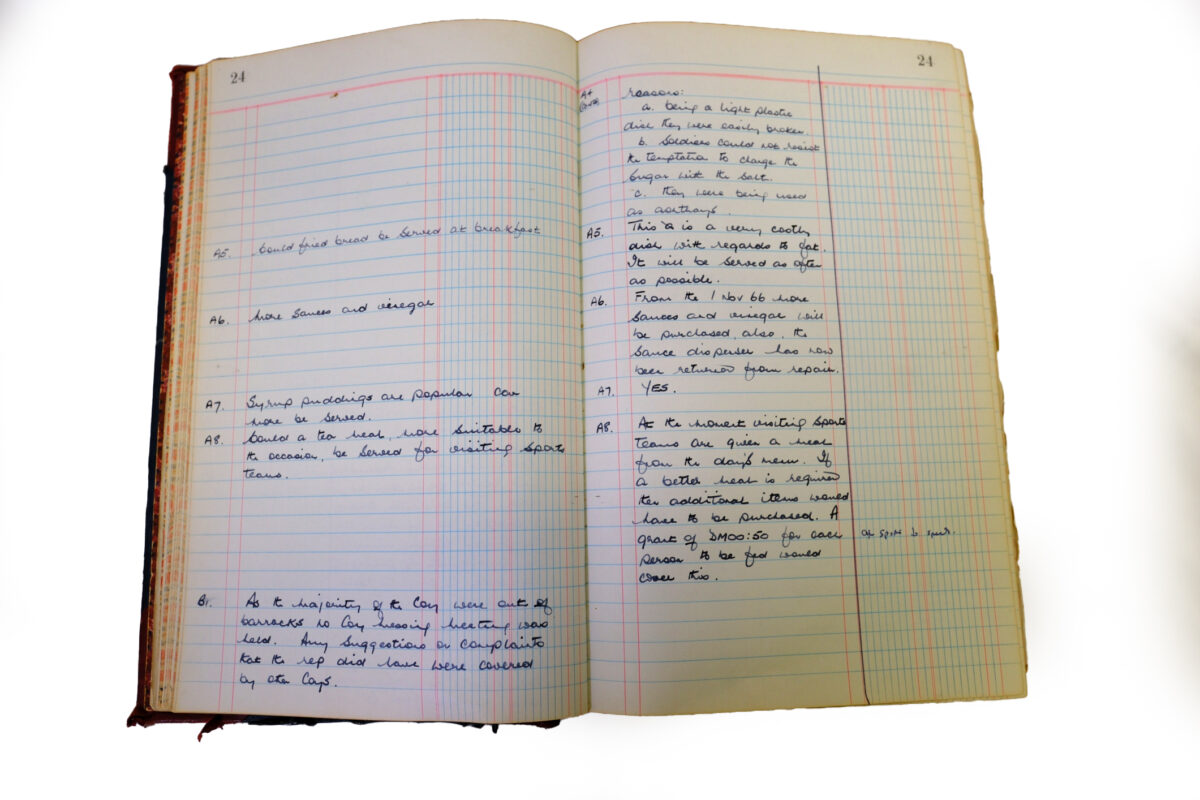 24
A5. Could fried bread be served at breakfast
A6. More sauces and vinegar
A7. Syrup puddings are popular can
more be served.
A8. Could a tea meal, more suitable to
the occasion, be served for visiting sports
teams.
B1. As the majority of the Coy were out of
barracks no Coy messing meeting was
held. Any suggestions or complaints
that the rep did have were covered
by other Coys.
24
A4 reasons:
a. being a light plastic
dish they were easily broken.
b. Soldiers could not resist
the temptation to change the
sugar with the salt.
c. they were being used
as ashtrays.
A5. This is a very costly
dish with regards to fat.
It will be served as often
as possible.
A6. From the 1 Nov 66 more
sauces and vinegar will
be purchased, also, the
sauce disperser has now
been returned from repair.
A7. YES.
A8. At the moment visiting sports
teams are given a meal
from the day's menu. If
a better meal is required
then additional items would
have to be purchased. A
grant of DM00:50 for each
person to be fed would
cover this.